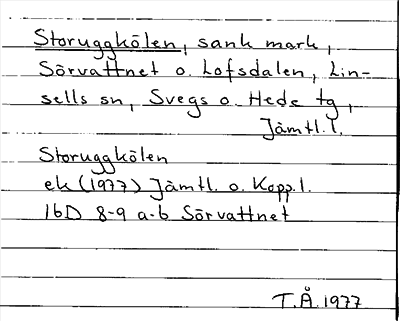 Storuggkölen, sank mark,
Sörvattnet o. Lofsdalen, Lin-
sells sn, Svegs o. Hede tg,
Jämtl. l.
Storuggkölen
ek (1977) Jämtl. o. Kopp. l.
16D 8-9 a-b Sörvattnet
T.Å. 1977